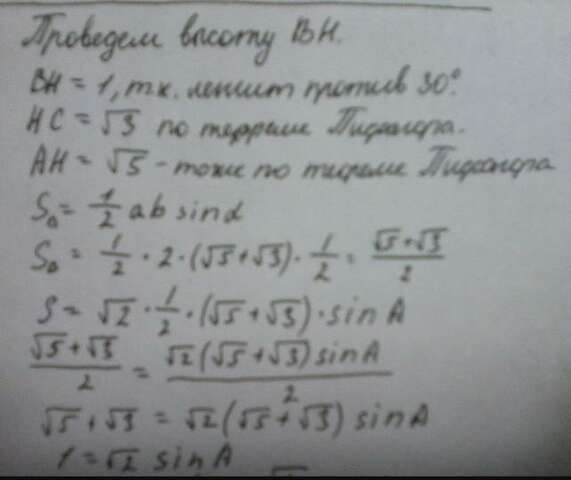 Проведем высоту BH.
BH = 1, т.к. лежит против 30°.
HC = √3 по теореме Пифагора.
AH = √5 - тоже по теореме Пифагора
S△ = 1/2 ab sinα
S△ = 1/2 · 2 · (√5 + √3) · 1/2 = (√5 + √3)/2
S = √2 · 1/2 · (√5 + √3) · sin A
(√5 + √3)/2 = (√2 (√5 + √3) sin A)/2
√5 + √3 = √2 (√5 + √3) sin A
1 = √2 sin A